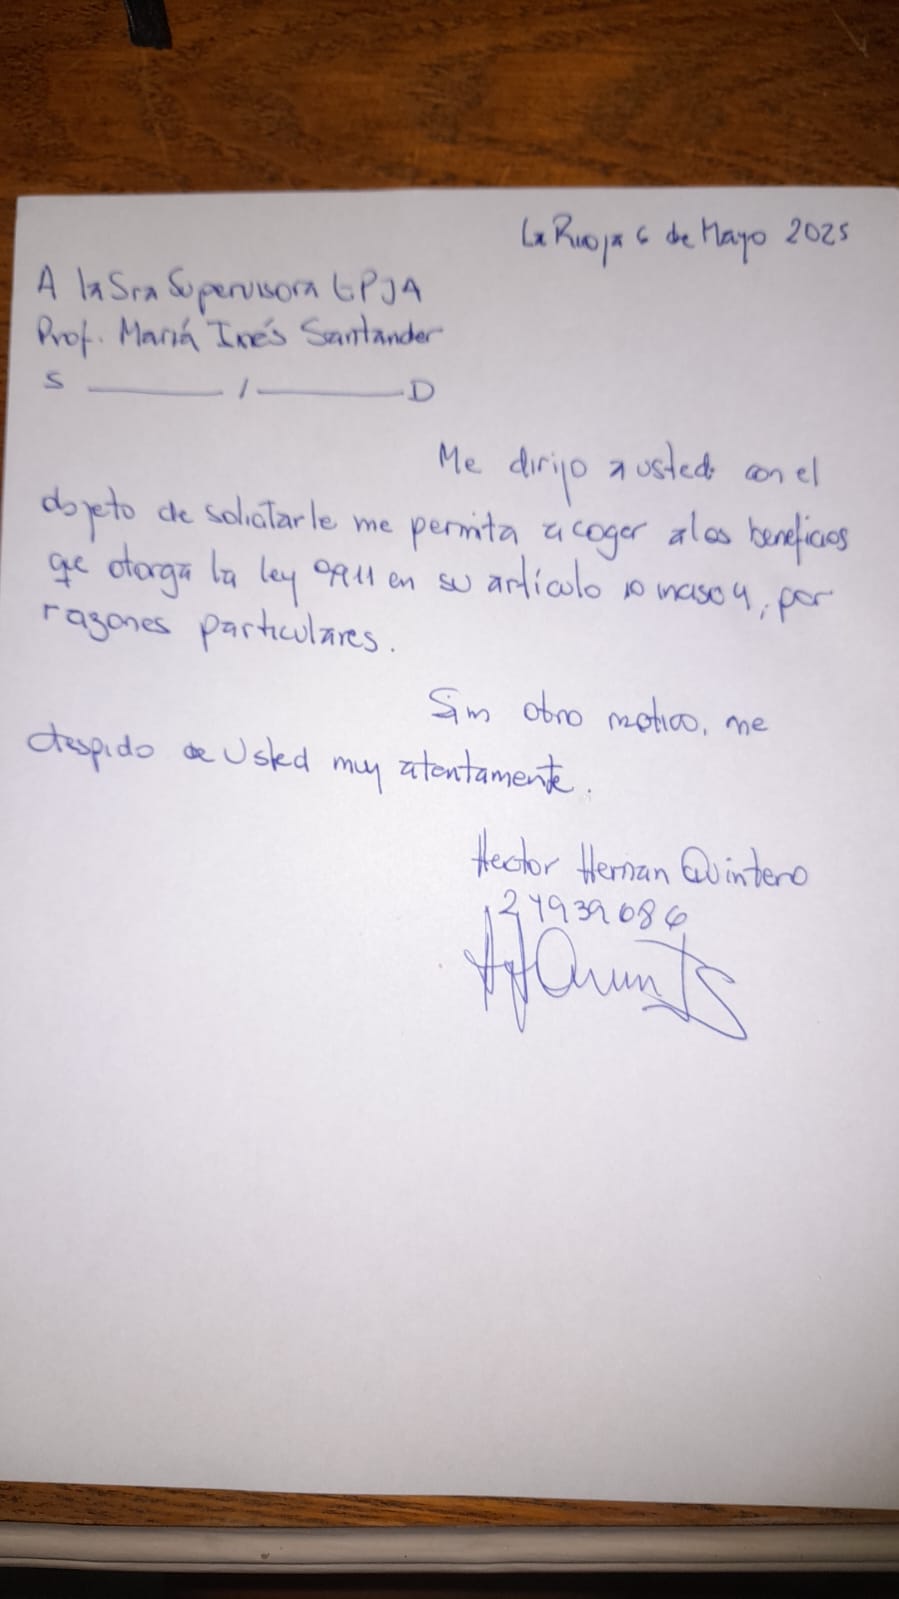 La Rioja 6 de Mayo 2025
A la Sra Supervisora EPJA
Prof. Mariá Inés Santander
S ———— / ———— D
Me dirijo a usted con el
objeto de solicitarle me permita acoger a los beneficios
que otorga la ley 9911 en su artículo 10 inciso 4, por
razones particulares.
Sin otro motivo, me
despido de Usted muy atentamente.
Hector Hernan Quintero
27939686